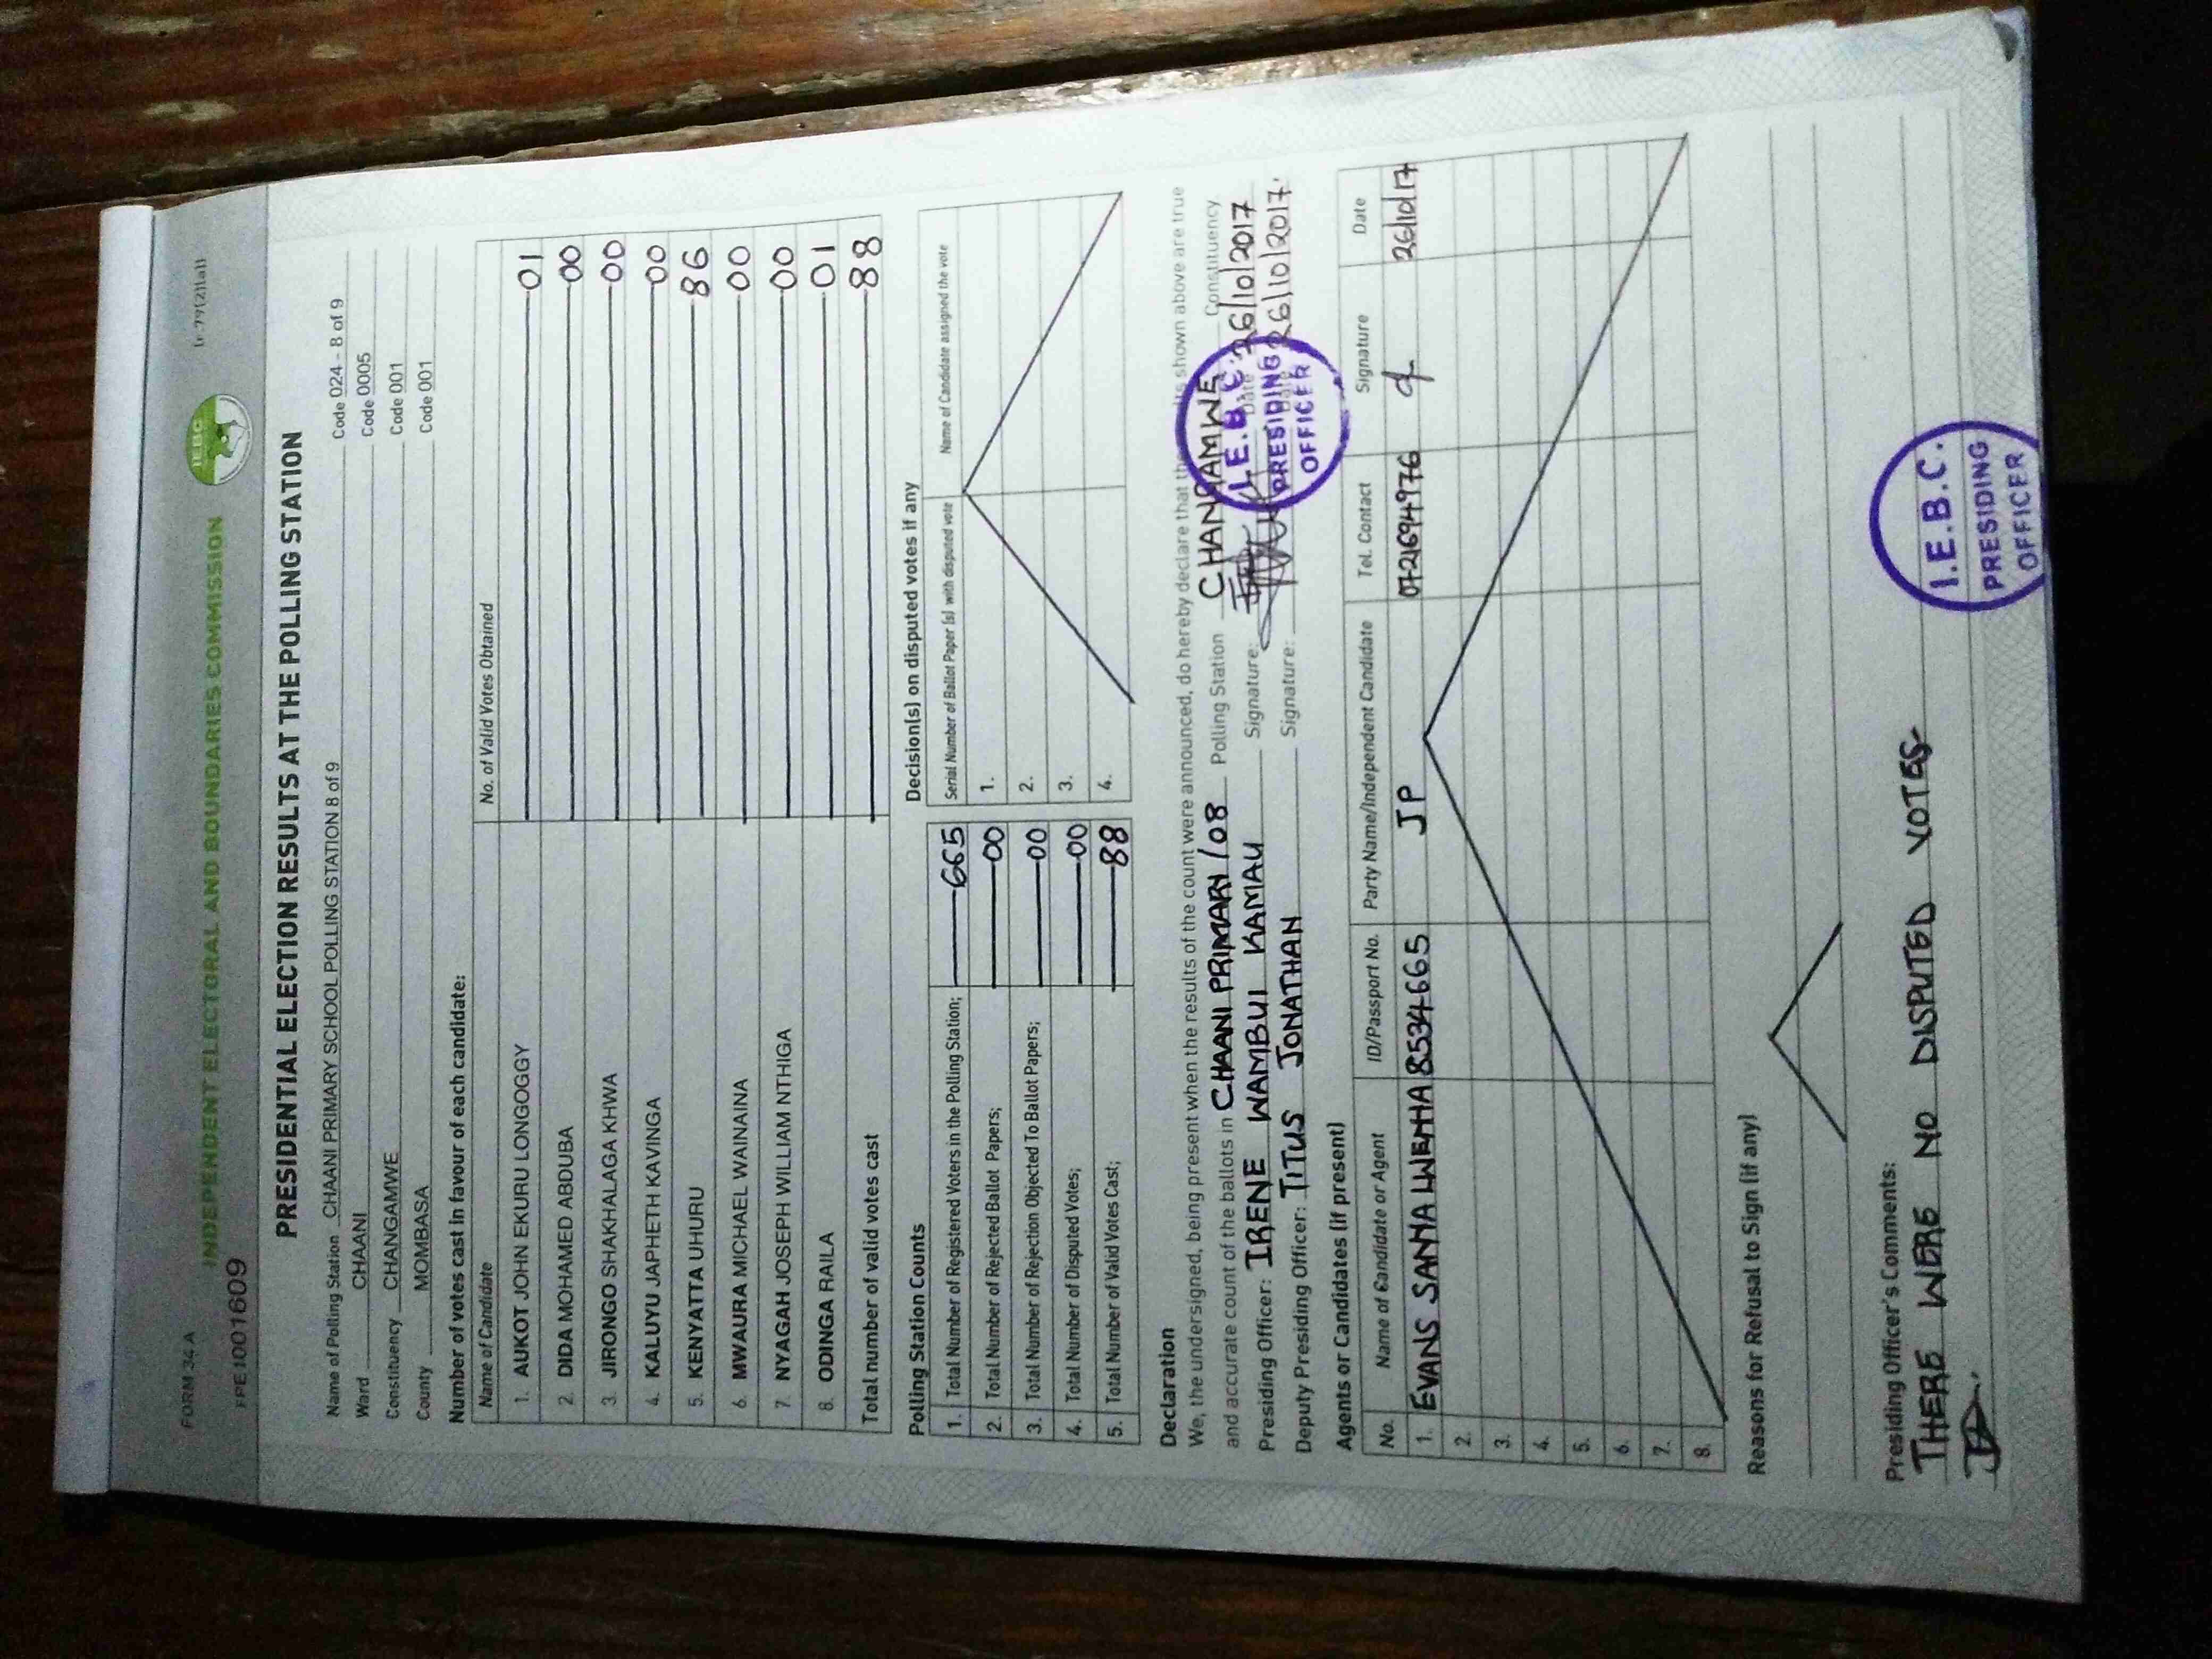 FORM 34 A
(r.79(2)(a))
INDEPENDENT ELECTORAL AND BOUNDARIES COMMISSION
IEBC
EPE1001609
PRESIDENTIAL ELECTION RESULTS AT THE POLLING STATION
Name of Polling Station CHAANI PRIMARY SCHOOL POLLING STATION 8 of 9 Code 024 - 8 of 9
Ward CHAANI Code 0005
Constituency CHANGAMWE Code 001
County MOMBASA Code 001
Number of votes cast in favour of each candidate:
Name of Candidate No. of Valid Votes Obtained
1. AUKOT JOHN EKURU LONGOGGY 01
2. DIDA MOHAMED ABDUBA 00
3. JIRONGO SHAKHALAGA KHWA 00
4. KALUYU JAPHETH KAVINGA 00
5. KENYATTA UHURU 86
6. MWAURA MICHAEL WAINAINA 00
7. NYAGAH JOSEPH WILLIAM NTHIGA 00
8. ODINGA RAILA 01
Total number of valid votes cast 88
Polling Station Counts
1. Total Number of Registered Voters in the Polling Station; 665
2. Total Number of Rejected Ballot Papers; 00
3. Total Number of Rejection Objected To Ballot Papers; 00
4. Total Number of Disputed Votes; 00
5. Total Number of Valid Votes Cast; 88
Decision(s) on disputed votes if any
Serial Number of Ballot Paper (s) with disputed vote Name of Candidate assigned the vote
1.
2.
3.
4.
Declaration
We, the undersigned, being present when the results of the count were announced, do hereby declare that the shown above are true
and accurate count of the ballots in CHAANI PRIMARY /08 Polling Station CHANGAMWE Constituency
Presiding Officer: IRENE WAMBUI KAMAU Signature: Date 26/10/2017
Deputy Presiding Officer: TITUS JONATHAN Signature: Date 26/10/2017.
I.E.B.C.
PRESIDING
OFFICER
Agents or Candidates (if present)
No. Name of Candidate or Agent ID/Passport No. Party Name/Independent Candidate Tel. Contact Signature Date
1. EVANS SANNA LWEHHA 8534665 JP 0721694976 26/10/17
2.
3.
4.
5.
6.
7.
8.
Reasons for Refusal to Sign (if any)
Presiding Officer's Comments:
THERE WERE NO DISPUTED VOTES
I.E.B.C.
PRESIDING
OFFICER